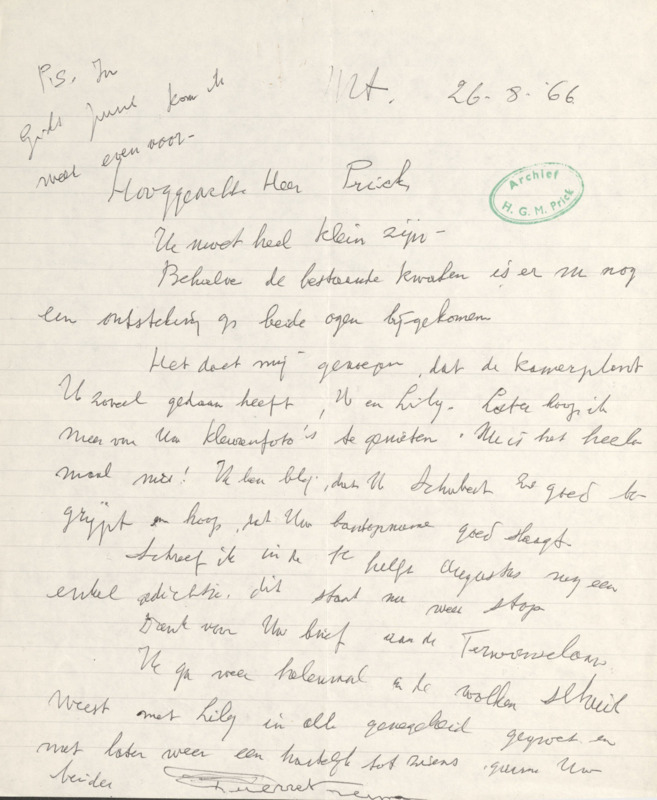 P.S. In
Gids Juni kom ik
weer even voor-
Mt. 26-8-'66
Hooggeachte Heer Prick
Archief
H. G. M. Prick
Ik moet heel klein zijn-
Behalve de bestaande kwalen is er nu nog
een ontsteking op beide ogen bij-gekomen
Het doet mij genoegen, dat de kamerplant
U zoveel gedaan heeft, U en Lily. Later hoop ik
meer van Uw kleurenfoto's te genieten. Nu is het hele
maal mis! Ik ben blij, dat U Schubert zo goed be
grijpt en hoop, dat Uw bandopname goed slaagt
Schreef ik in de 1e helft Augustus nog een
enkel gedichtje, dit staat nu weer stop
Dank voor Uw brief aan de
Ik ga weer helemaal in de wolken
Weest met Lily in alle genegenheid gegroet en
met later weer een hartelijk tot ziens. gaarne Uw
beider Pierre Kemp